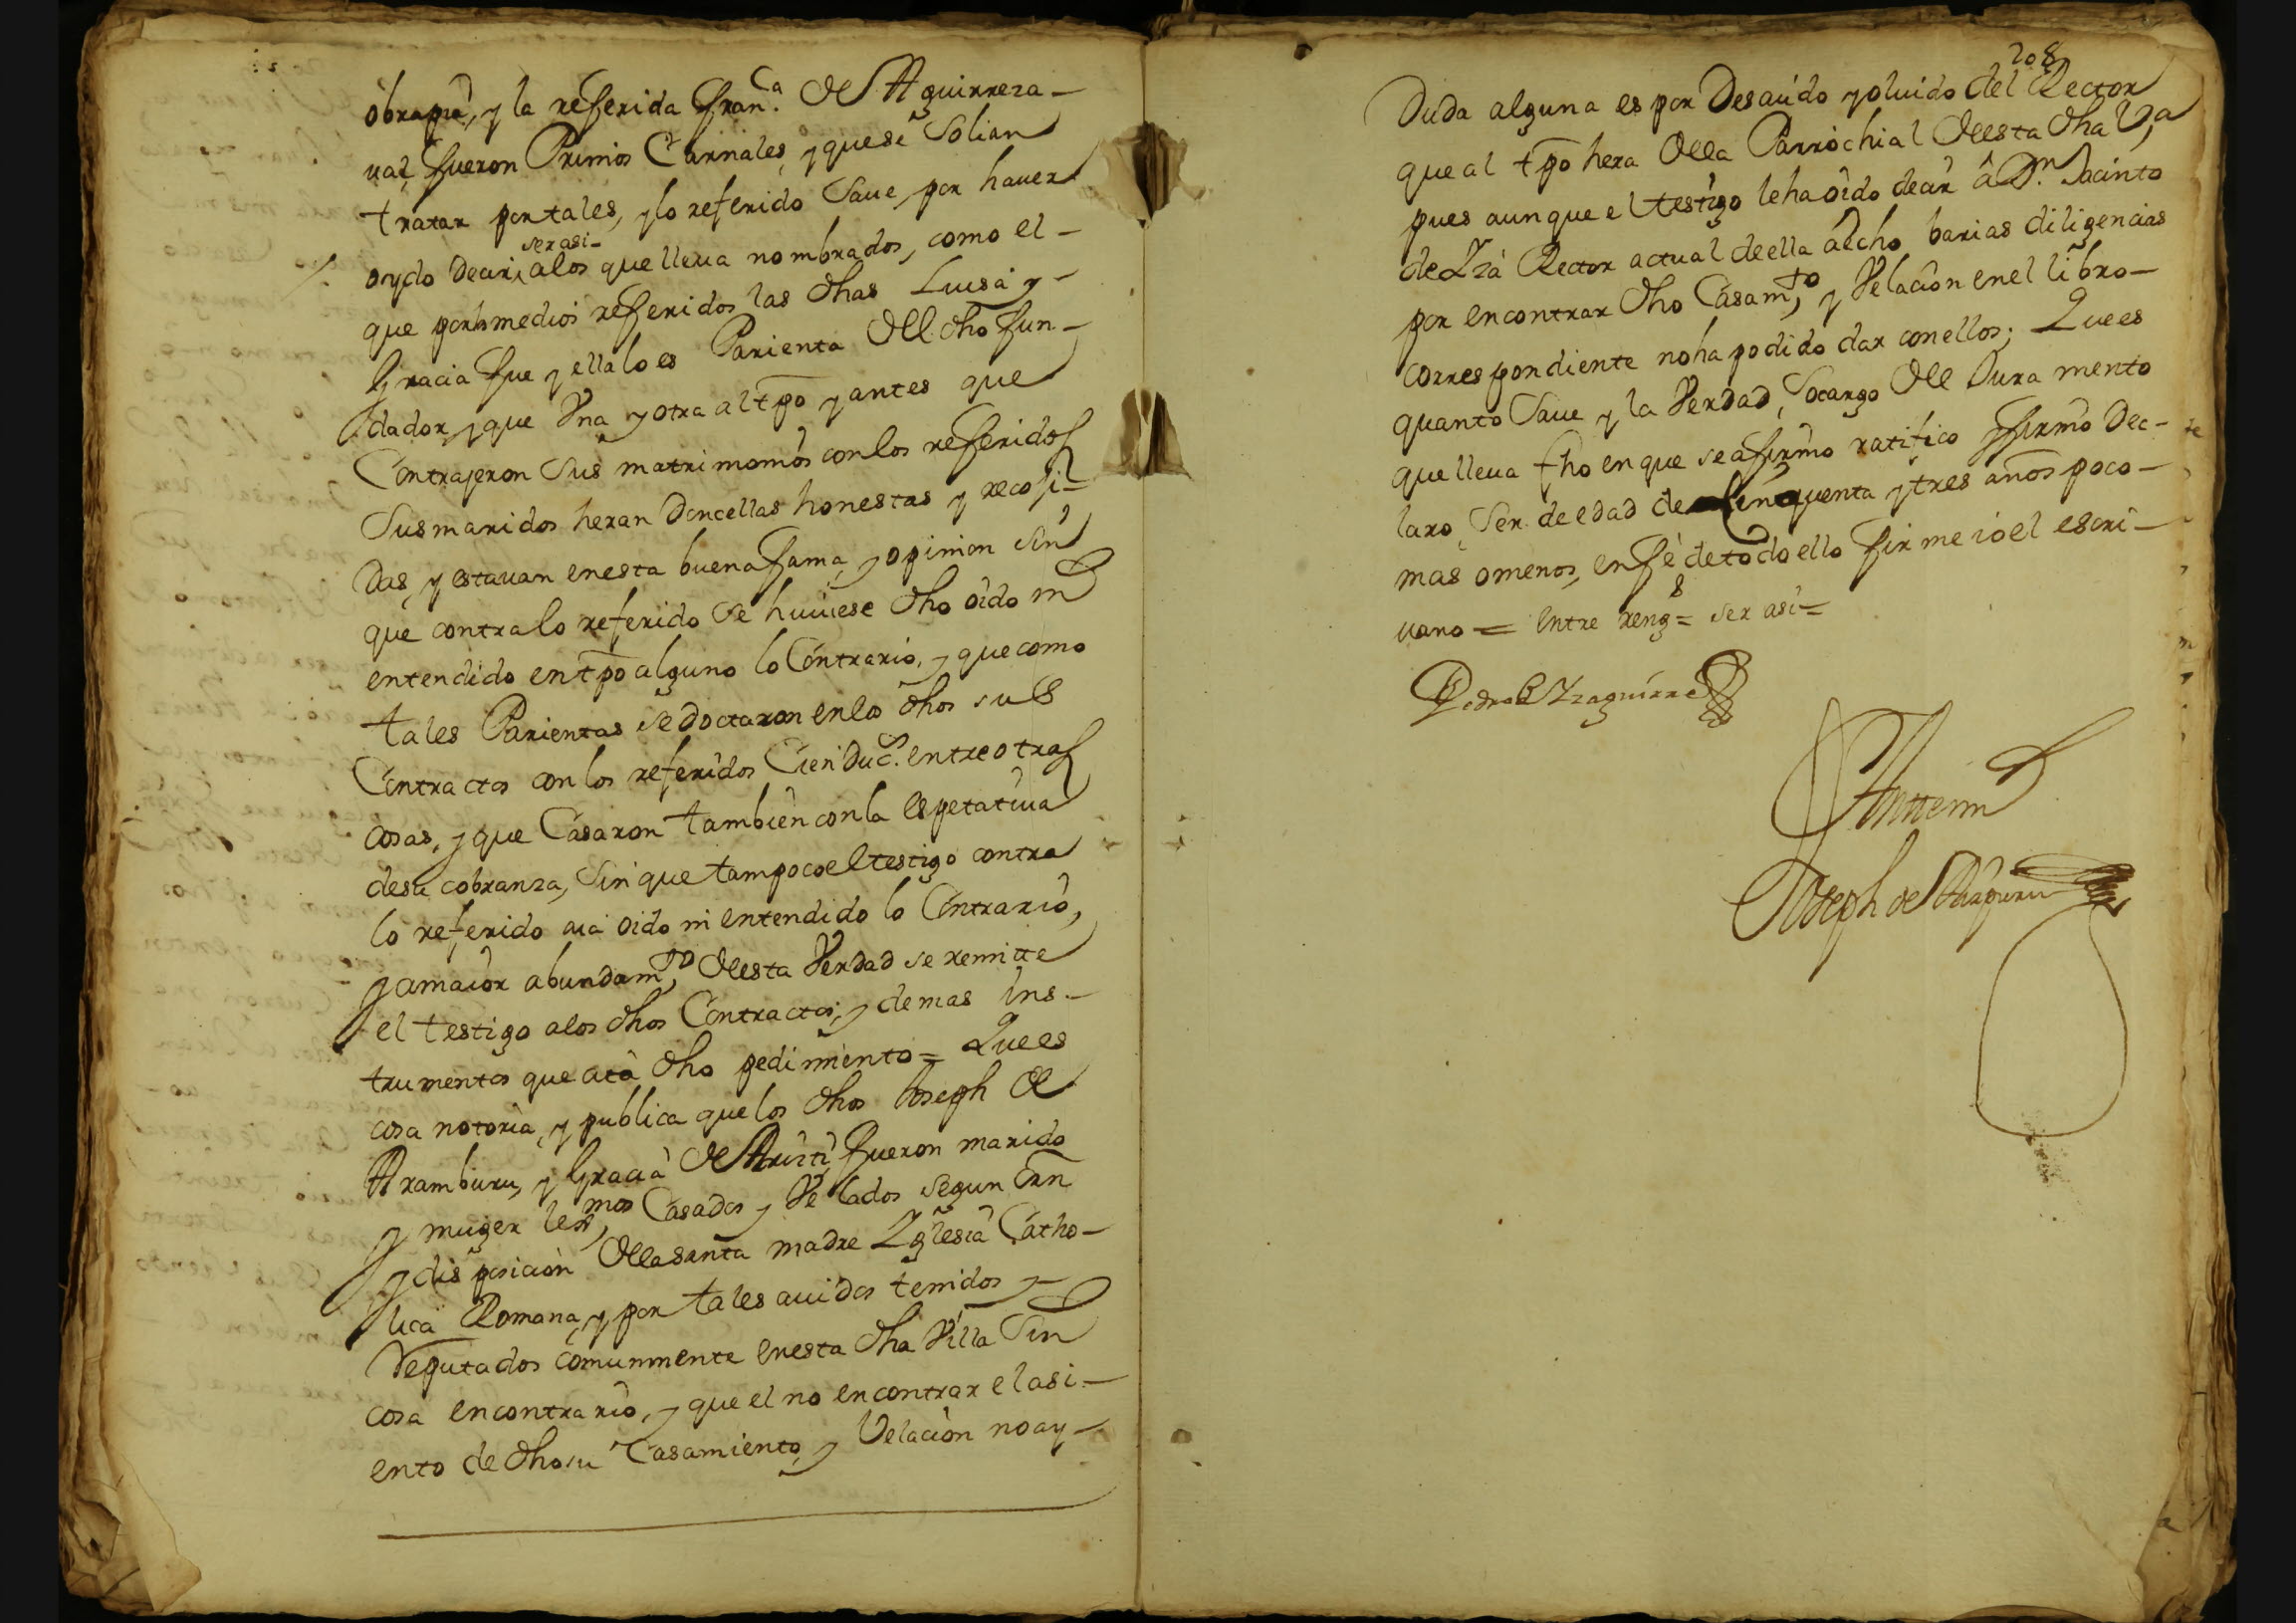 obrapia, y la referida Fran.ca de Aguirreza-
val, fueron Primos Carnales, y que se Solian
tratar por tales, y lo referido Save por haver
oydo decir, ser asi- a los que lleva nombrados, como el-
que por los medios referidos las dhas Luisa y-
Gracia fue y ella lo es Parienta del dho fun-
dador, y que Una y otra al tpo y antes que
Contrajeron Sus matrimonios con los referidos
Sus maridos heran Doncellas honestas y recoji-
das, y estavan en esta buena fama, y opinion sin
que contra lo referido se huviese dho oido ni
entendido en tpo alguno lo Contrario, y que como
tales Parientas se doctaron en los dhos sus
Contractos con los referidos Cien Duc.s entre otras
cosas, y que Casaron tambien con la espetativa
de su cobranza, Sin que tampoco el testigo contra
lo referido aia oido ni entendido lo Contrario,
y a maior abundam,to de esta Verdad se remitte
el testigo a los dhos Contractos, y demas ins-
trumentos que ata dho pedimiento = Que es
cosa notoria, y publica que los dhos Joseph de
Aramburu, y Gracia de Aristi fueron marido
y muger lexmos, Casados y Velados segun orn
y disposicion de la santa madre Yglesia Catho-
lica Romana, y por tales avidos tenidos y-
reputados comunmente en esta dha Villa Sin
cosa en contrario, y que el no encontrar el asi-
ento de dho su Casamiento, y Velacion no ay-
208
Duda alguna es por Descuido y oluido del Rector
que al tpo hera de la Parrochial de esta dha V,a
pues aunque el testigo le ha oido decir â D.n Jacinto
de Yza Rector actual de ella a echo barias diligencias
por encontrar dho Casam,to y Velacion en el libro-
correspondiente no ha podido dar con ellos; Que es
quanto Save y la Verdad, Socargo del Jura mento
que lleva fho en que se afirmo ratifico y firmo Dec-
laro, Ser de edad de Cinquenta y tres años poco-
mas o menos, en fè de todo ello firme io el escri-
vano = Entre rengs = ser asi =
Pedro de Yzaguirre
Antemi
Joseph de